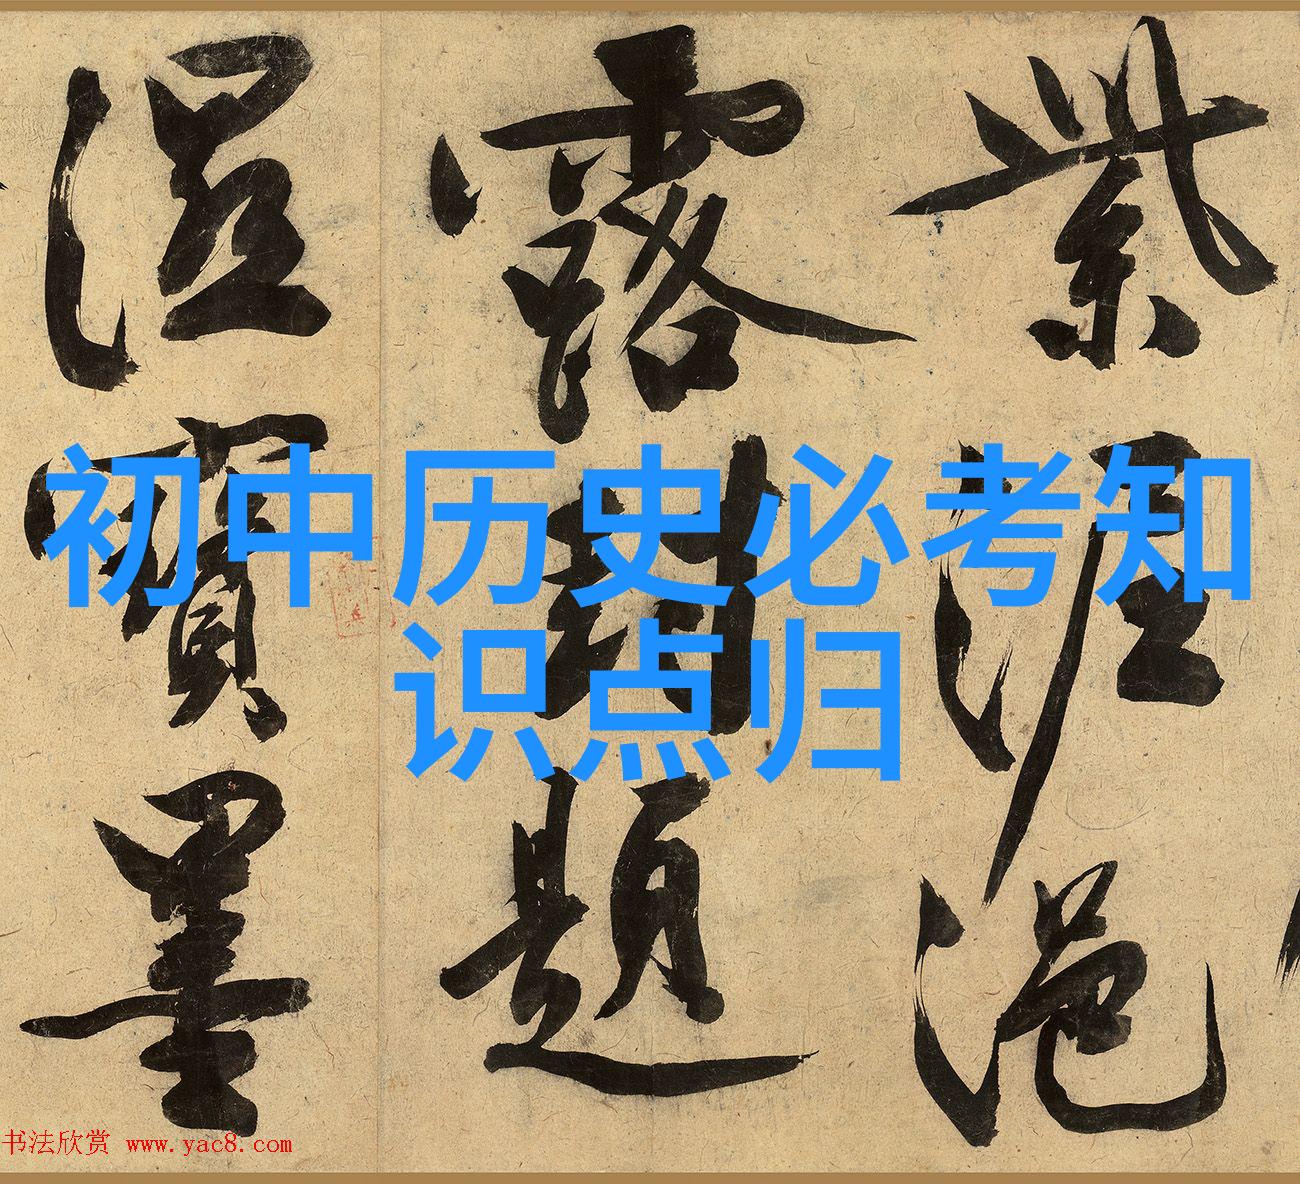 紫泥浥
露封題
溼寶墨
初中历史必考知
识点归
书法欣赏 www.yac8.com